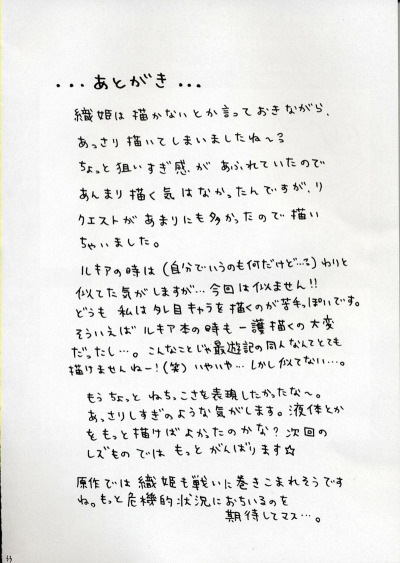 ・・・あとがき・・・
織姫は描かないとか言っておきながら、
あっさり描いてしまいましたね〜る
ちょっと狙いすぎ感があふれていたので
あんまり描く気はなかったんですが、リ
クエストがあまりにも多かったので描い
ちゃいました。
ルキアの時は(自分でいうのも何だけど…る)わりと
似てた気がしますが…今回は似ません!!
どうも 私はタレ目キャラを描くのが苦手っぽいです。
そういえばルキア本の時も一護描くの大変
だったし…。こんなことじゃ最遊記の同人なんてとても
描けませんねー!(笑)いやいや…しかし似てない…。
もうちょっと ねちっこさを表現したかったな〜。
あっさりしすぎのような気がします。液体とか
をもっと描けばよかったのかな?次回の
レズものでは もっと がんばります☆
原作では 織姫も戦いに巻きこまれそうです
ね。もっと危機的状況におちいるのを
期待してマス…。
43